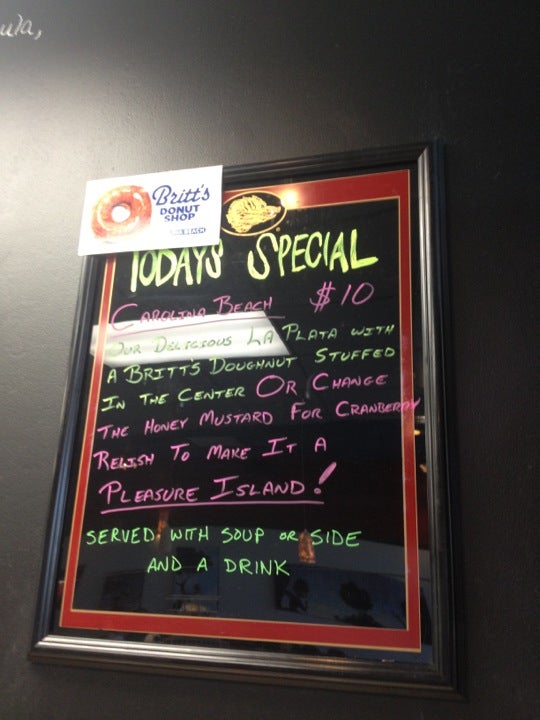 ula,
Britt's
DONUT
SHOP
BEACH
TODAYS SPECIAL
CAROLINA BEACH $10
OUR DELICIOUS LA PLATA WITH
A BRITT'S DOUGHNUT STUFFED
IN THE CENTER OR CHANGE
THE HONEY MUSTARD FOR CRANBERRY
RELISH TO MAKE IT A
PLEASURE ISLAND!
SERVED WITH SOUP OR SIDE
AND A DRINK